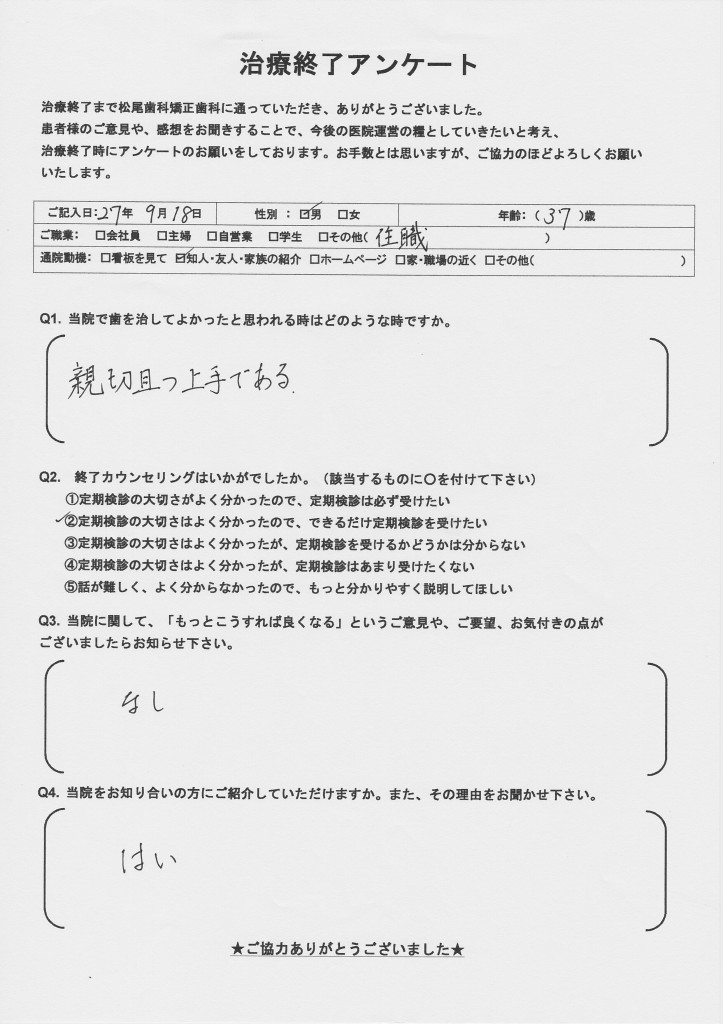 治療終了アンケート
治療終了まで松尾歯科矯正歯科に通っていただき、ありがとうございました。
患者様のご意見や、感想をお聞きすることで、今後の医院運営の糧としていきたいと考え、
治療終了時にアンケートのお願いをしております。お手数とは思いますが、ご協力のほどよろしくお願い
いたします。
ご記入日：27年 9月18日 性別 ： ☑男 □女 年齢：（ 37 ）歳
ご職業： □会社員 □主婦 □自営業 □学生 □その他（ 住職 ）
通院動機：□看板を見て ☑知人・友人・家族の紹介 □ホームページ □家・職場の近く □その他（ ）
Q1. 当院で歯を治してよかったと思われる時はどのような時ですか。
親切且つ上手である.
Q2. 終了カウンセリングはいかがでしたか。（該当するものに〇を付けて下さい）
①定期検診の大切さがよく分かったので、定期検診は必ず受けたい
✓②定期検診の大切さはよく分かったので、できるだけ定期検診を受けたい
③定期検診の大切さはよく分かったが、定期検診を受けるかどうかは分からない
④定期検診の大切さはよく分かったが、定期検診はあまり受けたくない
⑤話が難しく、よく分からなかったので、もっと分かりやすく説明してほしい
Q3. 当院に関して、「もっとこうすれば良くなる」というご意見や、ご要望、お気付きの点が
ございましたらお知らせ下さい。
なし
Q4. 当院をお知り合いの方にご紹介していただけますか。また、その理由をお聞かせ下さい。
はい
★ご協力ありがとうございました★